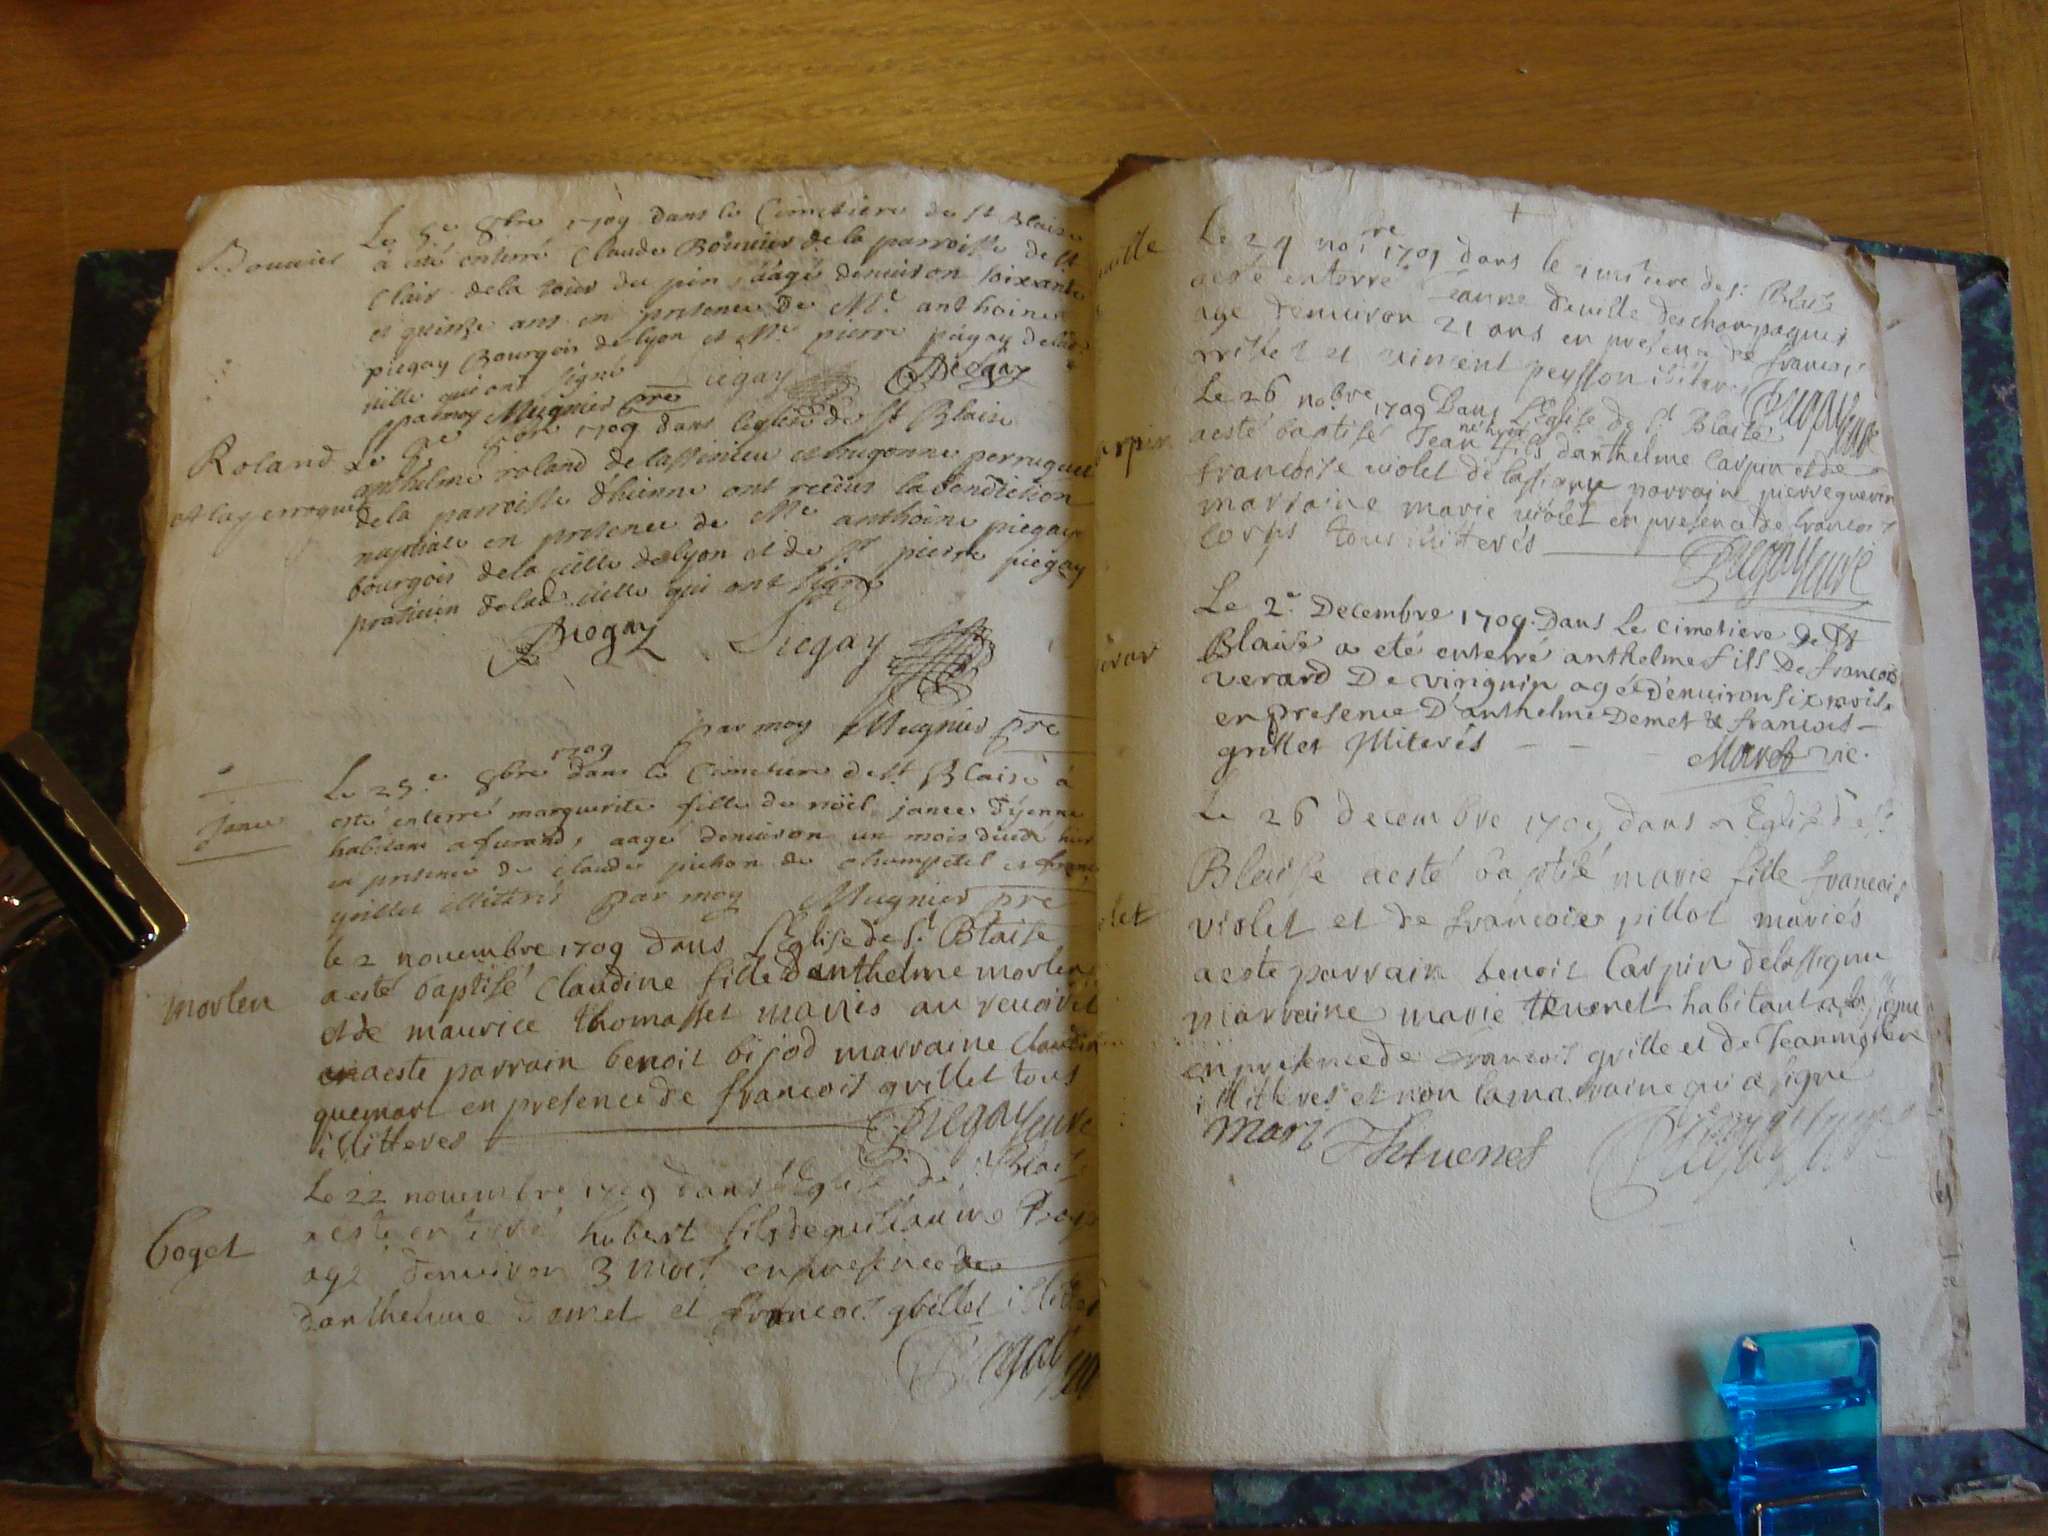 Bouuier
Le 5e 8bre 1709 dans le Cimetiere de st Blaise
à eté enterré Claude Bouuier de la parroisse de st
Clair dela tour du pin aagé denuiron soixante
et quinze ans en presence de Mre anthoine
piegay Bourgois de lyon et Mre pierre piegay delad.
uille qui ont signé Piegay Piegay
par moy Mugnier pre
Roland
et lay erroquet
Le 8bre 1709 dans leglise de st Blaise
anthelme roland de lassinieu et hugonne perruquet
dela parroisse dhienne ont receus la benediction
nuptiale en presence de Mre anthoine piegay
bourgois dela uille de lyon et de Sr pierre piegay
praticien delad. uille qui ont signé
Piegay Piegay
par moy Mugnier pre
Janee
Le 25e 8bre 1709 dans le Cimetiere de st Blaise à
esté enterré marguerite fille de nöel janee dÿenne
habitant a furand, aagé denuiron un mois
en presence de claude pichon de champetel et franc
grillet illitterés par moy Mugnier pre
morleu
le 2 nouembre 1709 dans l'Eglise de St Blaise
a esté baptisé Claudine fille d'anthelme morleu
et de maurice thomasset mariés au reuoiret
en aeste parrain benoit bijod marraine Claudin
quemart en presence de francois grillet tous
illitteres Piegay curé
Coget
Le 22 nouembre 1709 dans l'Eglise de St Blaise
a este enterré hubert fils de guillaume
agé denuiron 3 mois en presence de
d'anthelme demet et francois grillet illiter
Piegay
Le 24 nobre 1709 dans le cimitiere de St Blaise
aesté enterré Jeanne deuille des champagnes
age denuiron 21 ans en presence de francois
et uincent peysson iliteres
Piegay curé
arpin
Le 26 nobre 1709 Dans l'Eglise de St Blaise
aesté baptisé Jean fils danthelme Carpin et de
francoise uiolet de lassigneu parrain pierre guerin
marraine marie uiolet en presence de francois
Corps tous illitterés
Piegay curé
Le 2e. Decembre 1709. Dans Le cimetiere De St
Blaise a eté enterré anthelme fils De francois
verard De virignin agé d'enuiron six mois.
en presence D'anthelme Demet & francois
grillet Illiterés
Marest vic.
olet
Le 26 decembre 1709 dans l'Eglise de St
Blaise aesté baptisé marie fille francois
violet et de francoise pillot mariés
a este parrain benoit Carpin delassigneu
marraine marie teuenet habitant a lassigneu
en presence de francois grille et de Jean morleu
illitteres et non la marraine qui a signé
Mari Theuenet Piegay